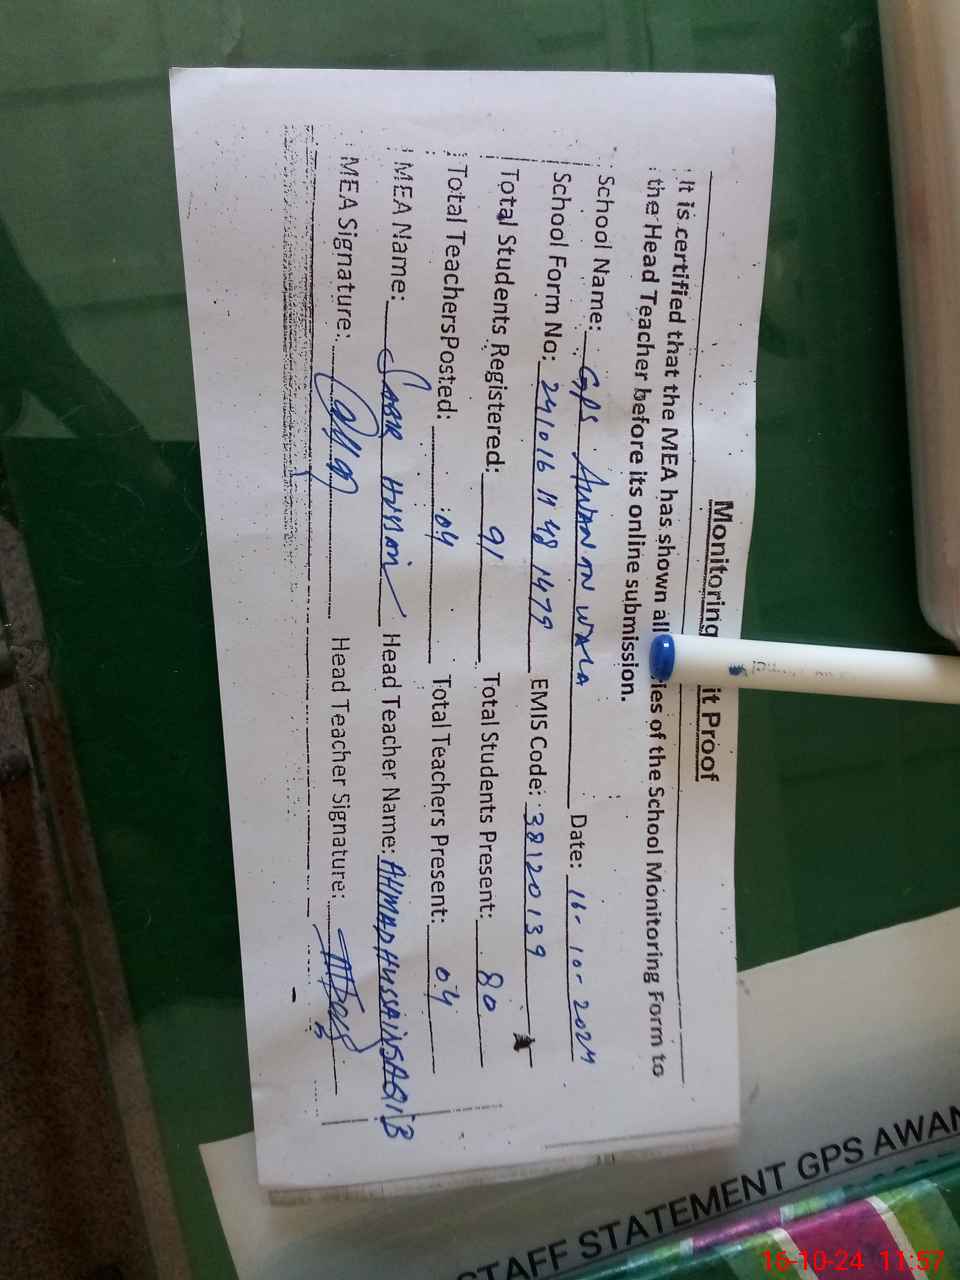 Monitoring it Proof
It is certified that the MEA has shown all ries of the School Monitoring Form to
the Head Teacher before its online submission.
School Name: GPS AWANAN WALA Date: 16-10-2024
School Form No: 241016 11 48 1479 EMIS Code: 38120139
Total Students Registered: 91 Total Students Present: 80
Total TeachersPosted: 04 Total Teachers Present: 04
MEA Name: SABIR HUSSAIN Head Teacher Name: AHMAD HUSSAIN SAQIB
MEA Signature: Head Teacher Signature:
STAFF STATEMENT GPS AWAN
16-10-24 11:57